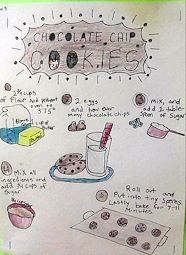 CHOCOLATE CHIP
COOKIES
cups
of flour and preheat
oven to
375°
2 eggs
and how ever
many chocolate chips
mix, and
add 1 table-
spoon of sugar
Mix all
ingredients and
add ¾ cups of
Sugar
Roll out and
Put into tiny spheres
Lastly bake for 7-11
Minutes